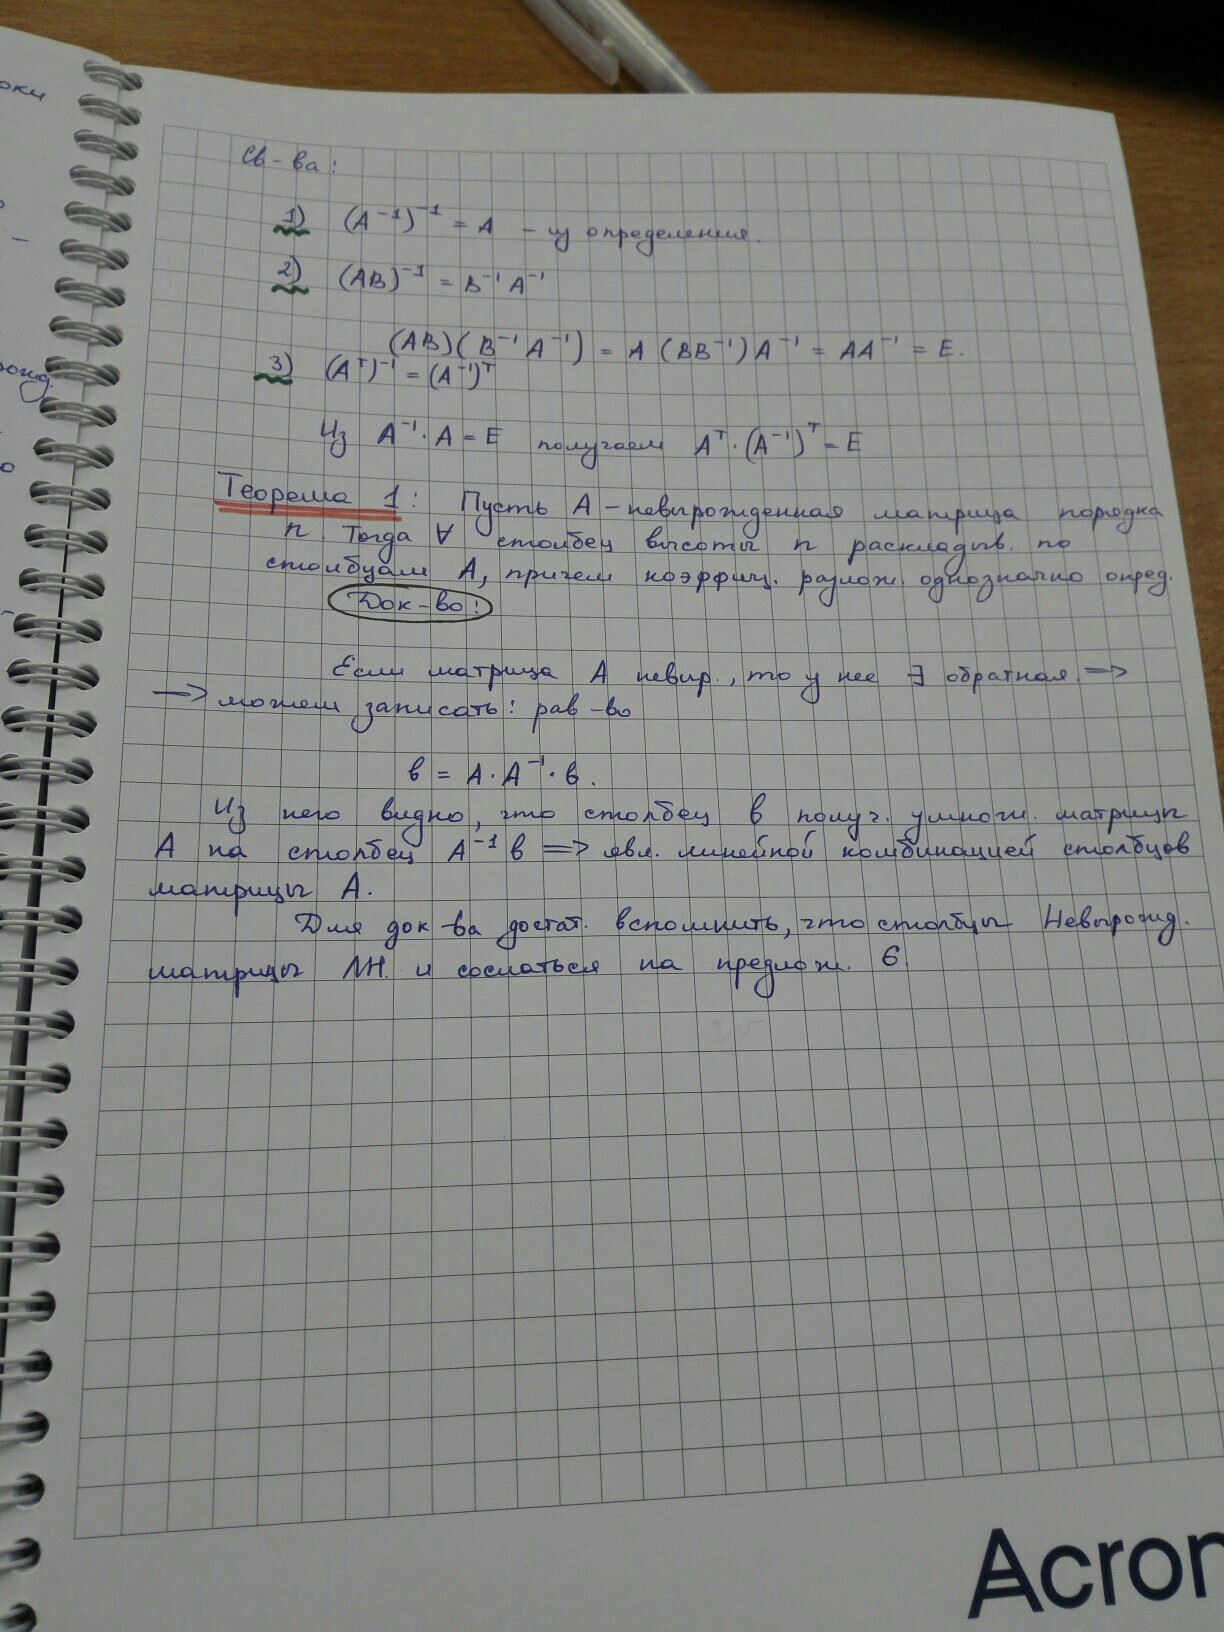 Св-ва:
1) (A⁻¹)⁻¹ = A – из определения.
2) (AB)⁻¹ = B⁻¹A⁻¹
(AB)(B⁻¹A⁻¹) = A(BB⁻¹)A⁻¹ = AA⁻¹ = E.
3) (Aᵀ)⁻¹ = (A⁻¹)ᵀ
Из A⁻¹·A = E получаем Aᵀ·(A⁻¹)ᵀ = E
Теорема 1: Пусть A – невырожденная матрица порядка
n Тогда ∀ столбец высоты n раскладыв. по
столбцам A, причем коэффиц. разлож. однозначно опред.
Док-во:
Если матрица A невыр., то у нее ∃ обратная =>
=> можем записать: рав-во
b = A·A⁻¹·b.
Из него видно, что столбец b получ. умнож. матрицы
A на столбец A⁻¹b => явл. линейной комбинацией столбцов
матрицы A.
Для док-ва достат. вспомнить, что столбцы Невырожд.
матрицы ЛН. и сослаться на предлож. 6.
Acron